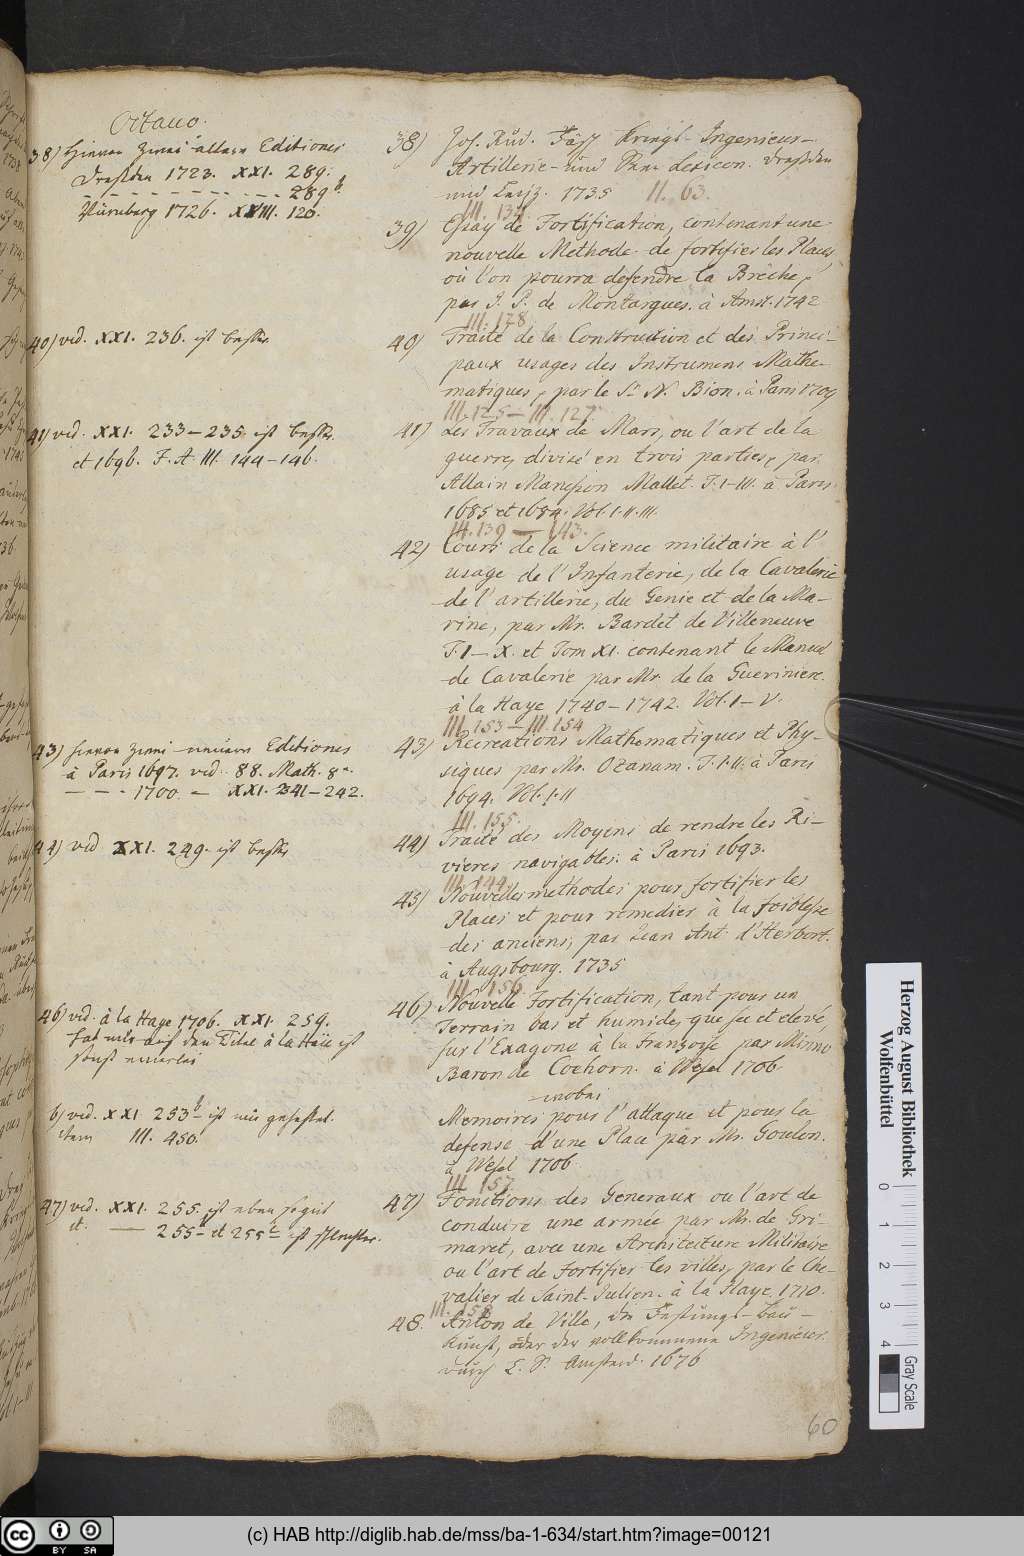 Octavo.
38) hievon zwei ältere Editiones
Dresden 1723. XXI. 289.
289 b
Nürnberg 1726. XXIII. 120.
40) vid. XXI. 236. ist besser
41) vid. XXI. 233–235 ist besser.
et 1696. F. A III. 144–146.
43) hievon zwei neuere Editiones
à Paris 1697. vid. 88. Math. 8°.
— — - 1700. — XXI. 241–242.
44) vid XXI. 249. ist besser
46) vid. à la Haye 1706. XXI. 259.
hat nur auf dem Titel à la Haie ist
sonst einerlei
b) vid. XXI 253 b ist nur geheftet.
item III. 450.
47) vid. XXI. 255. ist eben so gut
et. — 255 b et 255 c ist schlechter.
38) Joh. Rud. Fäsch Kriegs- Ingenieur-
Artillerie- und See Lexicon. Dresden
und Leipz. 1735 II. 63.
III. 134.
39) Essay de Fortification, contenant une
nouvelle Methode de fortifier les Places
où l'on pourra defendre la Brêche,
par J. P. de Montargues. à Amst. 1742
III. 128
40) Traité de la Construction et des Princi-
paux usages des Instrumens Mathe-
matiques, par le Sr N. Bion. à Paris 1709
III. 125 — III. 127.
41) Les Travaux de Mars, ou l'art de la
guerre, divisé en trois parties, par
Allain Manesson Mallet. T. I–III. à Paris
1685 et 1684. Vol. I. II. III.
III. 139 — 143.
42) Cours de la Science militaire à l'
usage de l'Infanterie, de la Cavalerie
de l'artillerie, du Genie et de la Ma-
rine, par Mr. Bardet de Villeneuve
T. I — X. et Tom XI. contenant le Manuel
de Cavalerie par Mr. de la Gueriniere.
à la Haye 1740–1742. Vol. I–V.
III. 153 — III. 154
43) Recreations Mathematiques et Phy-
siques par Mr. Ozanam. T. I. II. à Paris
1694. Vol. I. II
III. 155.
44) Traité des Moyens de rendre les Ri-
vieres navigables. à Paris 1693.
III. 144.
45) Nouvelles methodes pour fortifier les
Places et pour remedier à la foiblesse
des anciens, par Jean Ant. d'Herbort.
à Augsbourg. 1735
III. 156.
46) Nouvelle Fortification, tant pour un
Terrain bas et humide, que sec et elevé,
sur l'Exagone à la françoise par Minno
Baron de Coehorn. à Wesel 1706.
wobei
Memoires pour l'attaque et pour la
defense d'une Place par Mr. Goulon.
à Wesel 1706
III. 157.
47) Fonctions des Generaux ou l'art de
conduire une armée par Mr. de Gri-
maret, avec une Architecture Militaire
ou l'art de Fortifier les villes, par le Che-
valier de Saint-Julien. à la Haye. 1710.
III. 158
48. Anton de Ville, die Festungs-Bau-
Kunst, oder der vollkommene Ingenieur.
durch L. P. Amsterd. 1676
60
Herzog August Bibliothek
Wolfenbüttel
0 1 2 3 4
Gray Scale
cc BY SA
(c) HAB http://diglib.hab.de/mss/ba-1-634/start.htm?image=00121